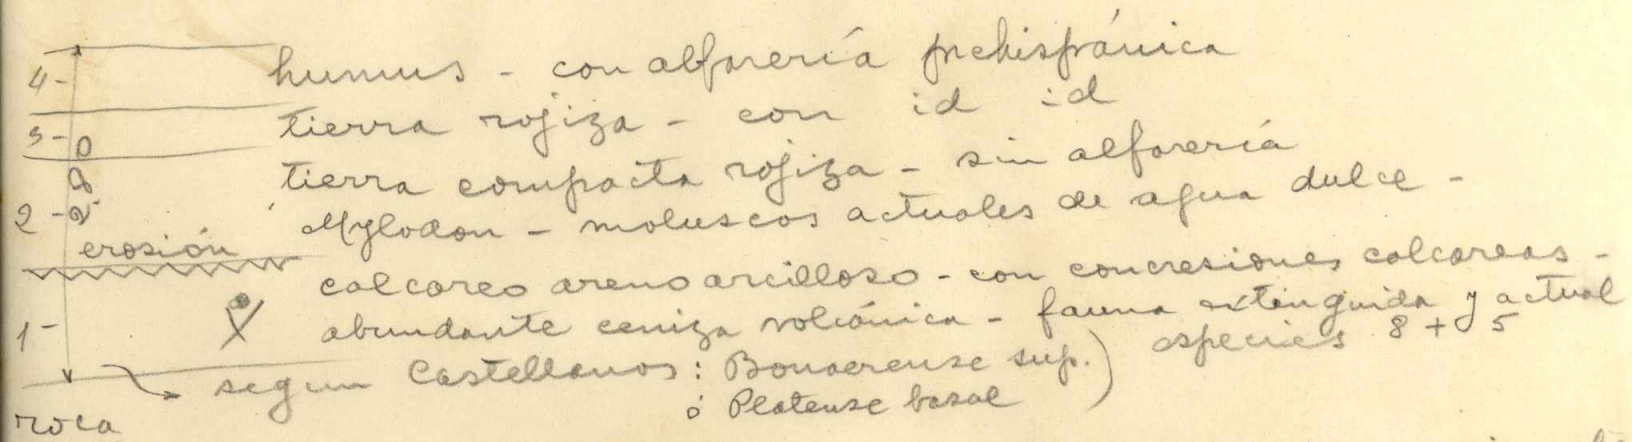 4- humus - con alfarería prehispánica
3- tierra rojiza - con id id
tierra compacta rojiza - sin alfarería
2- Mylodon - moluscos actuales de agua dulce -
erosión
calcareo areno arcilloso - con concresiones calcareas -
1- abundante ceniza volcánica - fauna extinguida y actual
especies 8 + 5
segun Castellanos: Bonaerense sup.)
ó Platense basal
roca